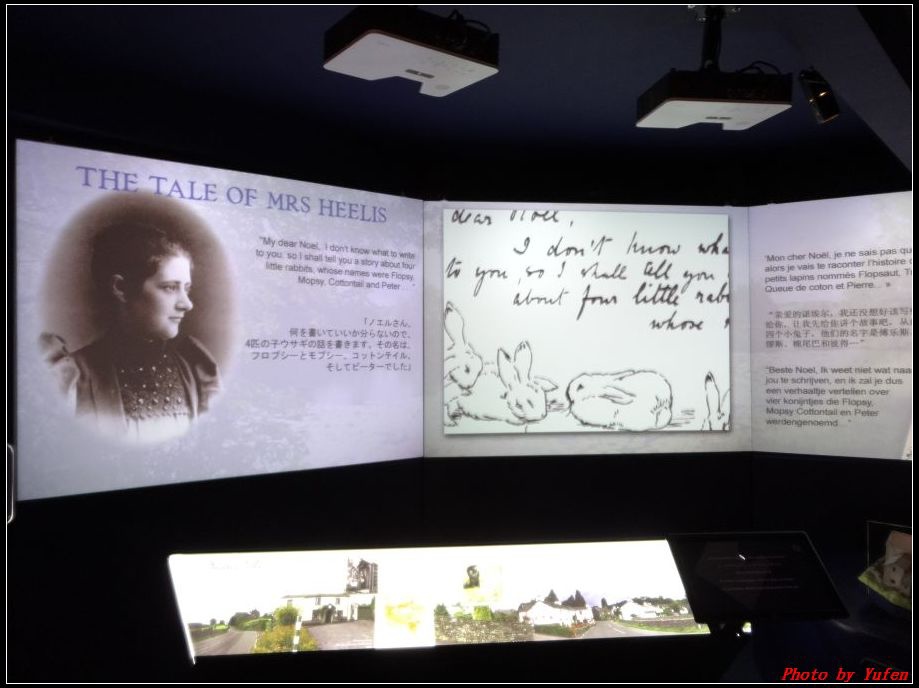 THE TALE OF MRS HEELIS
"My dear Noel, I don't know what to write
to you, so I shall tell you a story about four
little rabbits, whose names were Flopsy,
Mopsy, Cottontail and Peter..."
「ノエルさん、
何を書いていいか分らないので、
4匹の子ウサギの話を書きます。その名は、
フロプシーとモプシー、コットンテイル、
そしてピーターでした」
dear Noel,
I don't know wha
to you, so I shall tell you
about four little rab
whose
'Mon cher Noël, je ne sais pas qu
alors je vais te raconter l'histoire
petits lapins nommés Flopsaut, T
Queue de coton et Pierre... »
"亲爱的诺埃尔，我还没想好该写
给你，让我先给你讲个故事吧，从
四个小兔子，他们的名字是佛乐斯
穆斯、棉尾巴和彼得…"
"Beste Noel, Ik weet niet wat naa
jou te schrijven, en ik zal je dus
een verhaaltje vertellen over
vier konijntjes die Flopsy,
Mopsy Cottontail en Peter
werdengenoemd..."
Photo by Yufen